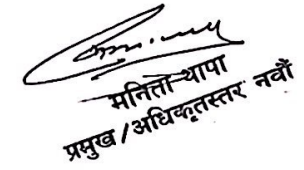 मनिता थापा
प्रमुख /अधिकृतस्तर नवौं